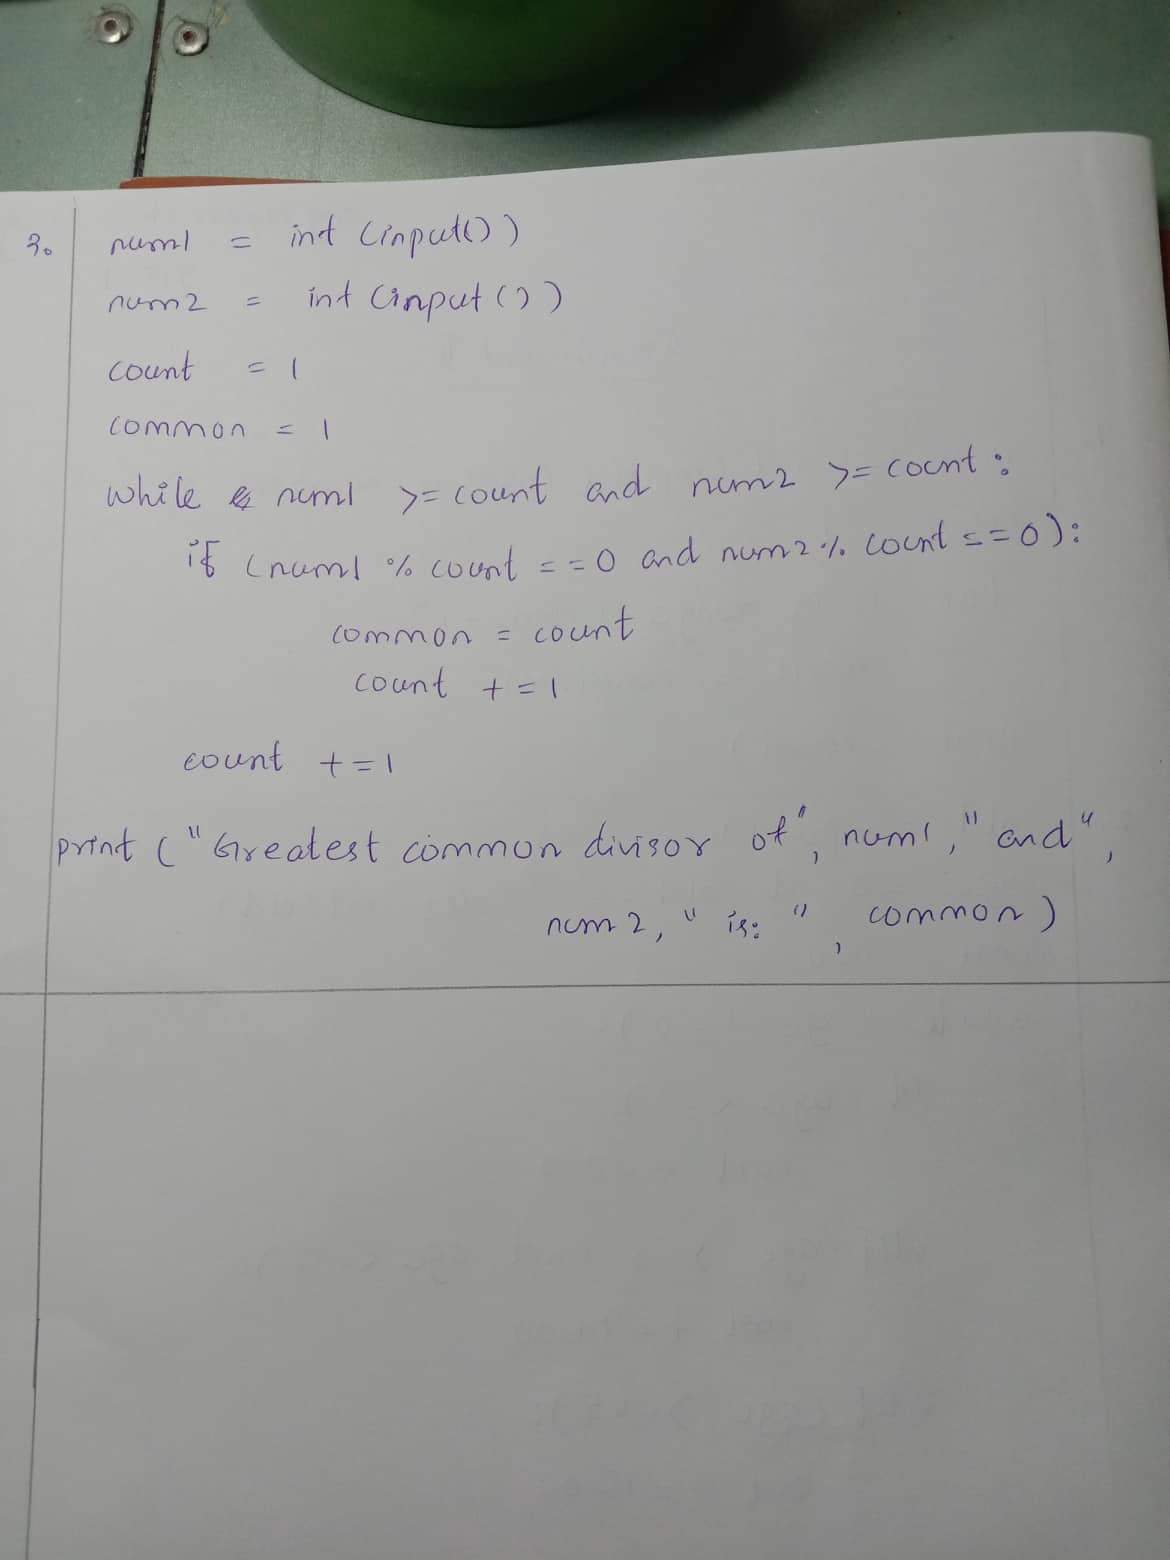 3. num1 = int (input())
num2 = int (input())
count = 1
common = 1
while num1 >= count and num2 >= count :
if (num1 % count == 0 and num2 % count == 0):
common = count
count += 1
count += 1
print ("Greatest common divisor of", num1, "and",
num2, " is: ", common)